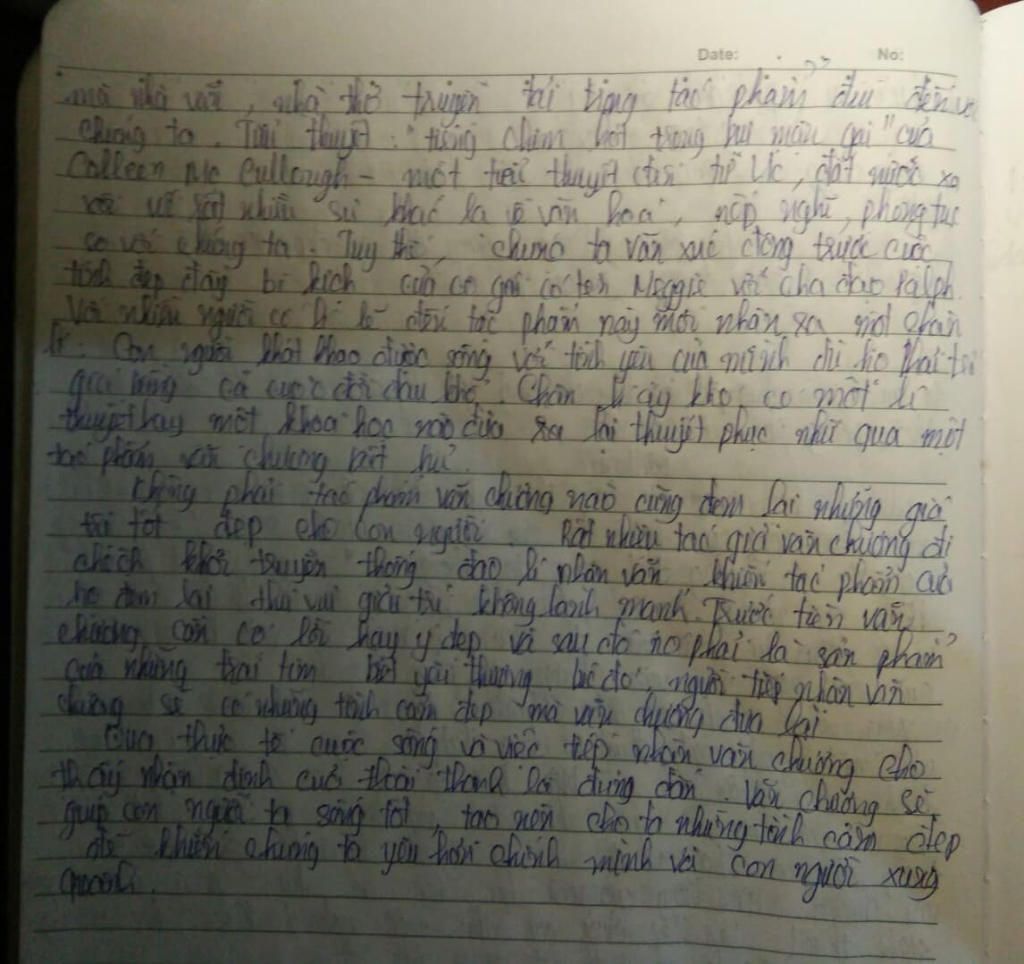 Date: No:
mà nhà văn, nhà thơ truyền tải trong tác phẩm đều đến với
chúng ta. Tiểu thuyết: "tiếng chim hót trong bụi mận gai" của
Colleen Mc Cullough - một tiểu thuyết đến từ Úc, đất nước xa
xôi về rất nhiều sự khác lạ về văn hoá, nếp nghĩ, phong tục
so với chúng ta. Tuy thế, chúng ta vẫn xúc động trước cuộc
tình đẹp đầy bi kịch của cô gái có tên Meggie với cha đạo Ralph.
Với nhiều người có lẽ đến tác phẩm này mới nhận ra một chân
lí. Con người khát khao được sống với tình yêu của mình dù họ phải trả
giá bằng cả cuộc đời đau khổ. Chân lí ấy khó có một lí
thuyết hay một khoa học nào đưa ra lại thuyết phục như qua một
tác phẩm văn chương bất hủ.
Không phải tác phẩm văn chương nào cũng đem lại những giá
trị tốt đẹp cho con người. Rất nhiều tác giả văn chương đi
chệch khỏi truyền thống đạo lí nhân văn khiến tác phẩm của
họ đem lại thú vui giải trí không lành mạnh. Trước tiên văn
chương cần có lời hay ý đẹp và sau đó nó phải là sản phẩm
của những trái tim biết yêu thương. Từ đó, người tiếp nhận văn
chương sẽ có những tình cảm đẹp mà văn chương đưa lại
Qua thực tế cuộc sống và việc tiếp nhận văn chương cho
thấy nhận định của Hoài Thanh là đúng đắn. Văn chương sẽ
giúp con người ta sống tốt, tạo nên cho ta những tình cảm đẹp
để khiến chúng ta yêu hơn chính mình và con người xung
quanh.